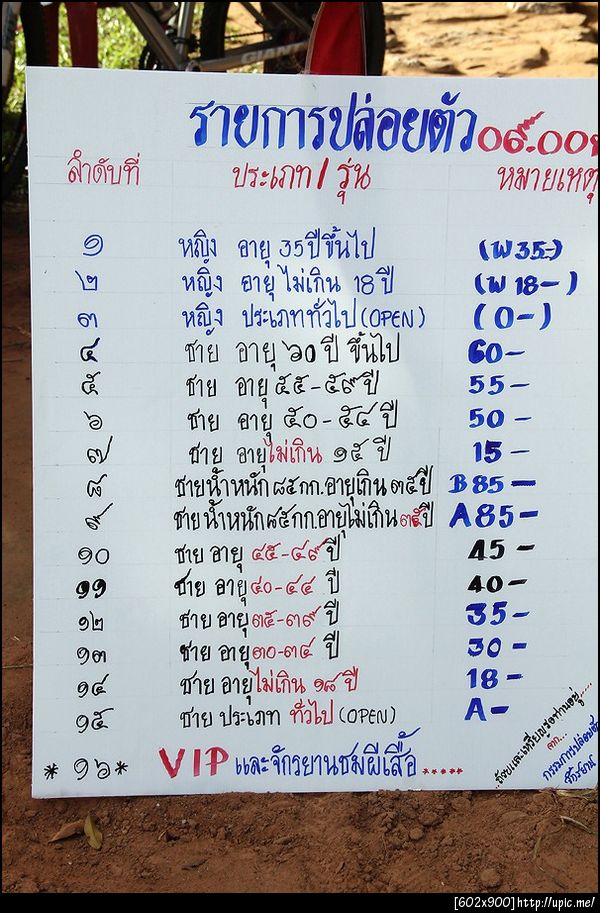 GIANT
รายการปล่อยตัว ๐๙.๐๐
ลำดับที่ ประเภท/รุ่น หมายเหตุ
๑ หญิง อายุ 35 ปีขึ้นไป (W35-)
๒ หญิง อายุ ไม่เกิน 18 ปี (W 18-)
๓ หญิง ประเภททั่วไป (OPEN) (O-)
๔ ชาย อายุ ๖๐ ปี ขึ้นไป 60-
๕ ชาย อายุ ๕๕-๕๙ ปี 55-
๖ ชาย อายุ ๕๐-๕๔ ปี 50-
๗ ชาย อายุไม่เกิน ๑๕ ปี 15-
๘ ชายน้ำหนัก ๘๕ กก. อายุเกิน ๓๕ ปี B85-
๙ ชายน้ำหนัก ๘๕ กก. อายุไม่เกิน ๓๕ ปี A85-
๑๐ ชาย อายุ ๔๕-๔๙ ปี 45-
๑๑ ชาย อายุ ๔๐-๔๔ ปี 40-
๑๒ ชาย อายุ ๓๕-๓๙ ปี 35-
๑๓ ชาย อายุ ๓๐-๓๔ ปี 30-
๑๔ ชาย อายุไม่เกิน ๑๘ ปี 18-
๑๕ ชาย ประเภท ทั่วไป (OPEN) A-
*๑๖* VIP และจักรยานชมผีเสื้อ.....
[602x900]http://upic.me/